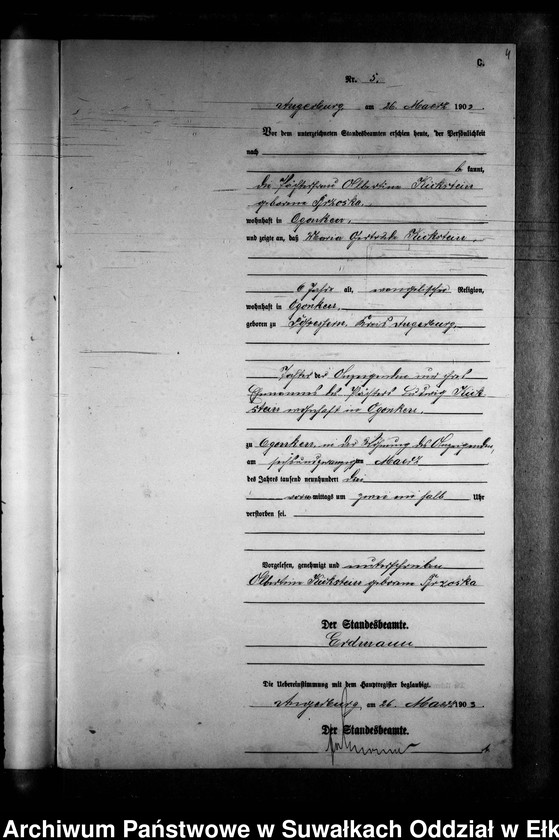 4
C.
Nr. 5.
Angerburg am 26 Maerz 1903.
Vor dem unterzeichneten Standesbeamten erschien heute, der Persönlichkeit
nach
be kannt,
die Pächterfrau Albertine Kuckstein
geborene Brzoska,
wohnhaft in Ogonken,
und zeigte an, daß Maria Gertrude Kuckstein,
6 Jahre alt, evangelischer Religion,
wohnhaft in Ogonken,
geboren zu Kreis Angerburg,
Tochter der Anzeigenden und ihres
Ehemannes des Pächters Ludwig Kuck-
stein wohnhaft in Ogonken.
zu Ogonken, in der Wohnung der Anzeigenden,
am sechsundzwanzigsten Maerz
des Jahres tausend neunhundert drei
vormittags um zwei ein halb Uhr
verstorben sei.
Vorgelesen, genehmigt und unterschrieben
Albertine Kuckstein geborene Brzoska
Der Standesbeamte.
Erdmann
Die Uebereinstimmung mit dem Hauptregister beglaubigt.
Angerburg, am 26 Maerz 1903
Der Standesbeamte.
Archiwum Państwowe w Suwałkach Oddział w Ełk